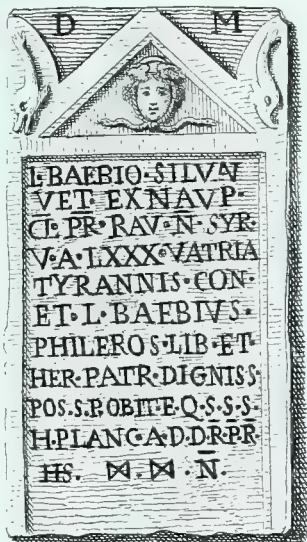 D M
L·BAEBIO·SILVAN
VET·EX N AVP·
CL·PR·RAV·N·SYR·
V·A·LXXX·VATRIA
TYRANNIS·CON·
ET·L·BAEBIVS·
PHILEROS·LIB·ET·
HER·PATR·DIGNISS
POS·S·P·OBIT·E·Q·S·S·S·
H·PLANC·A·D·D·R·P·R·
HS. ⋈·⋈·N̄.